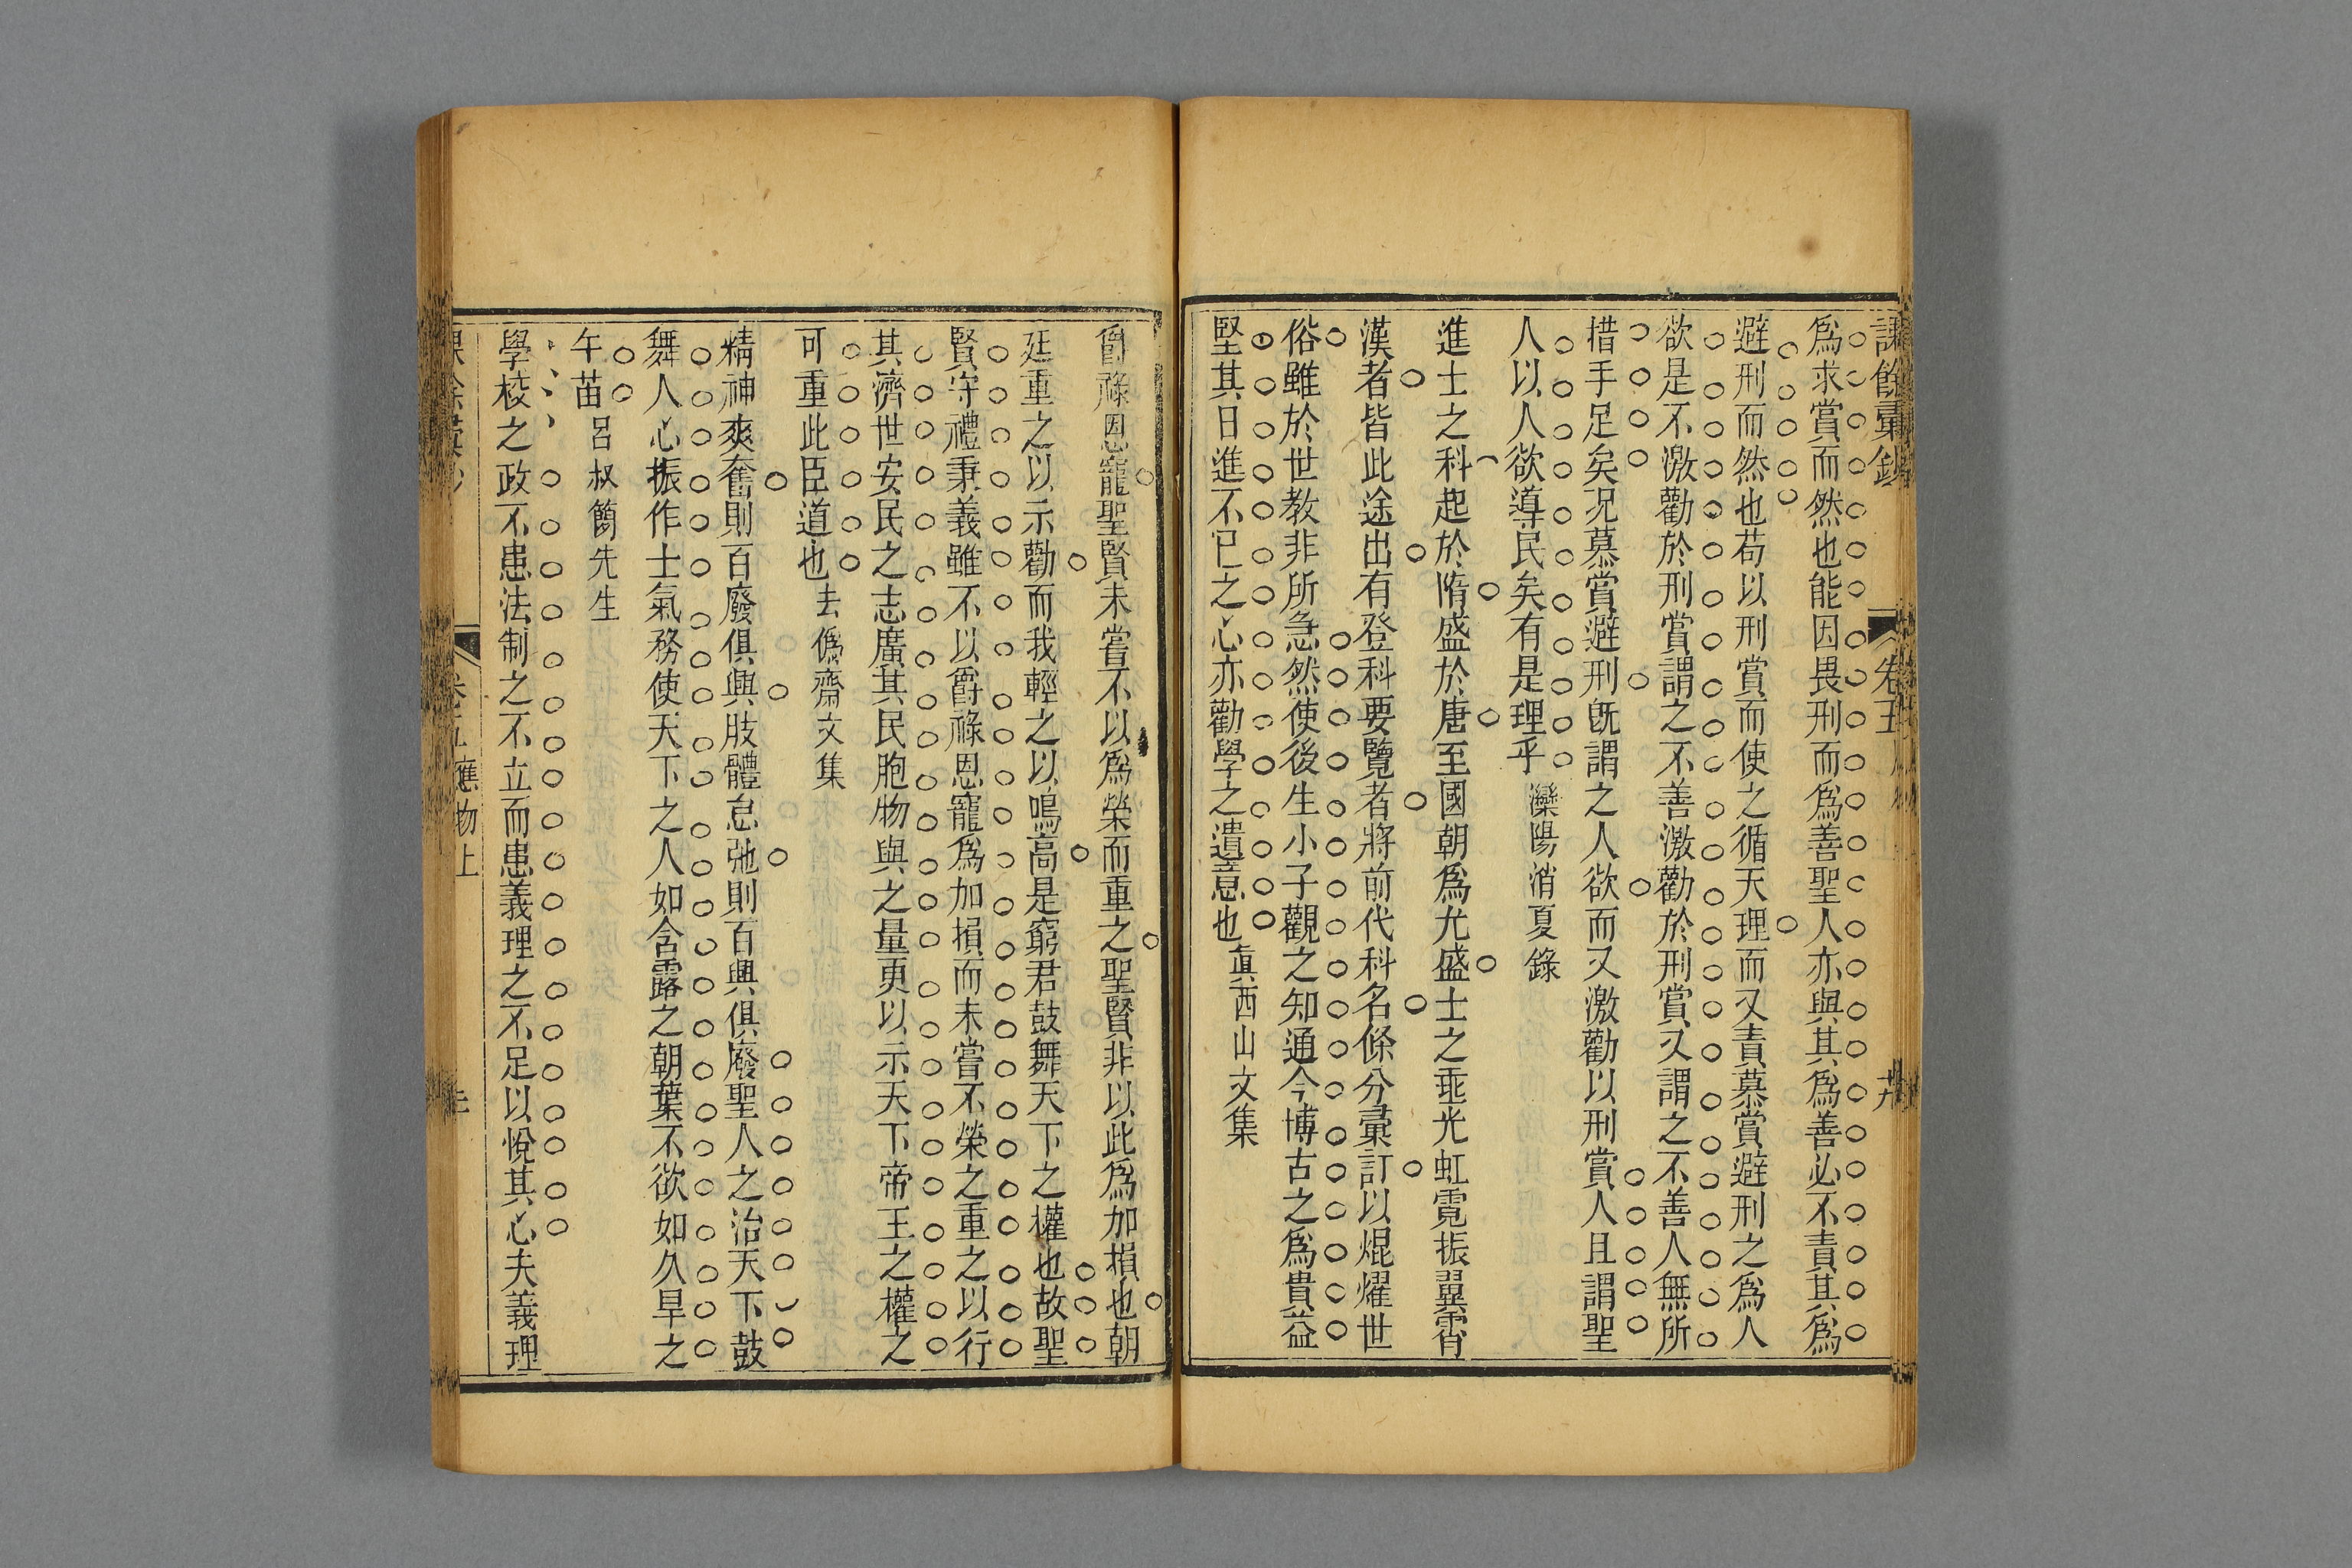 課餘彙鈔
卷五
爲求賞而然也能因畏刑而爲善聖人亦與其爲善必不責其爲
避刑而然也苟以刑賞而使之循天理而又責慕賞避刑之爲人
欲是不激勸於刑賞謂之不善激勸於刑賞又謂之不善人無所
措手足矣况慕賞避刑旣謂之人欲而又激勸以刑賞人且謂聖
人以人欲導民矣有是理乎 灤陽消夏錄
進士之科起於隋盛於唐至國朝爲尤盛士之乖光虹霓振翼霄
漢者皆此途出有登科要覽者將前代科名條分彙訂以焜燿世
俗雖於世教非所急然使後生小子觀之知通今博古之爲貴益
堅其日進不已之心亦勸學之遺意也 眞西山文集
爵祿恩寵聖賢未嘗不以爲榮而重之聖賢非以此爲加損也朝
廷重之以示勸而我輕之以鳴高是窮君鼓舞天下之權也故聖
賢守禮秉義雖不以爵祿恩寵爲加損而未嘗不榮之重之以行
其濟世安民之志廣其民胞物與之量更以示天下帝王之權之
可重此臣道也 去僞齋文集
精神爽奮則百廢俱興肢體怠弛則百興俱廢聖人之治天下鼓
舞人心振作士氣務使天下之人如含露之朝葉不欲如久旱之
午苗 呂叔簡先生
學校之政不患法制之不立而患義理之不足以悅其心夫義理
應物上